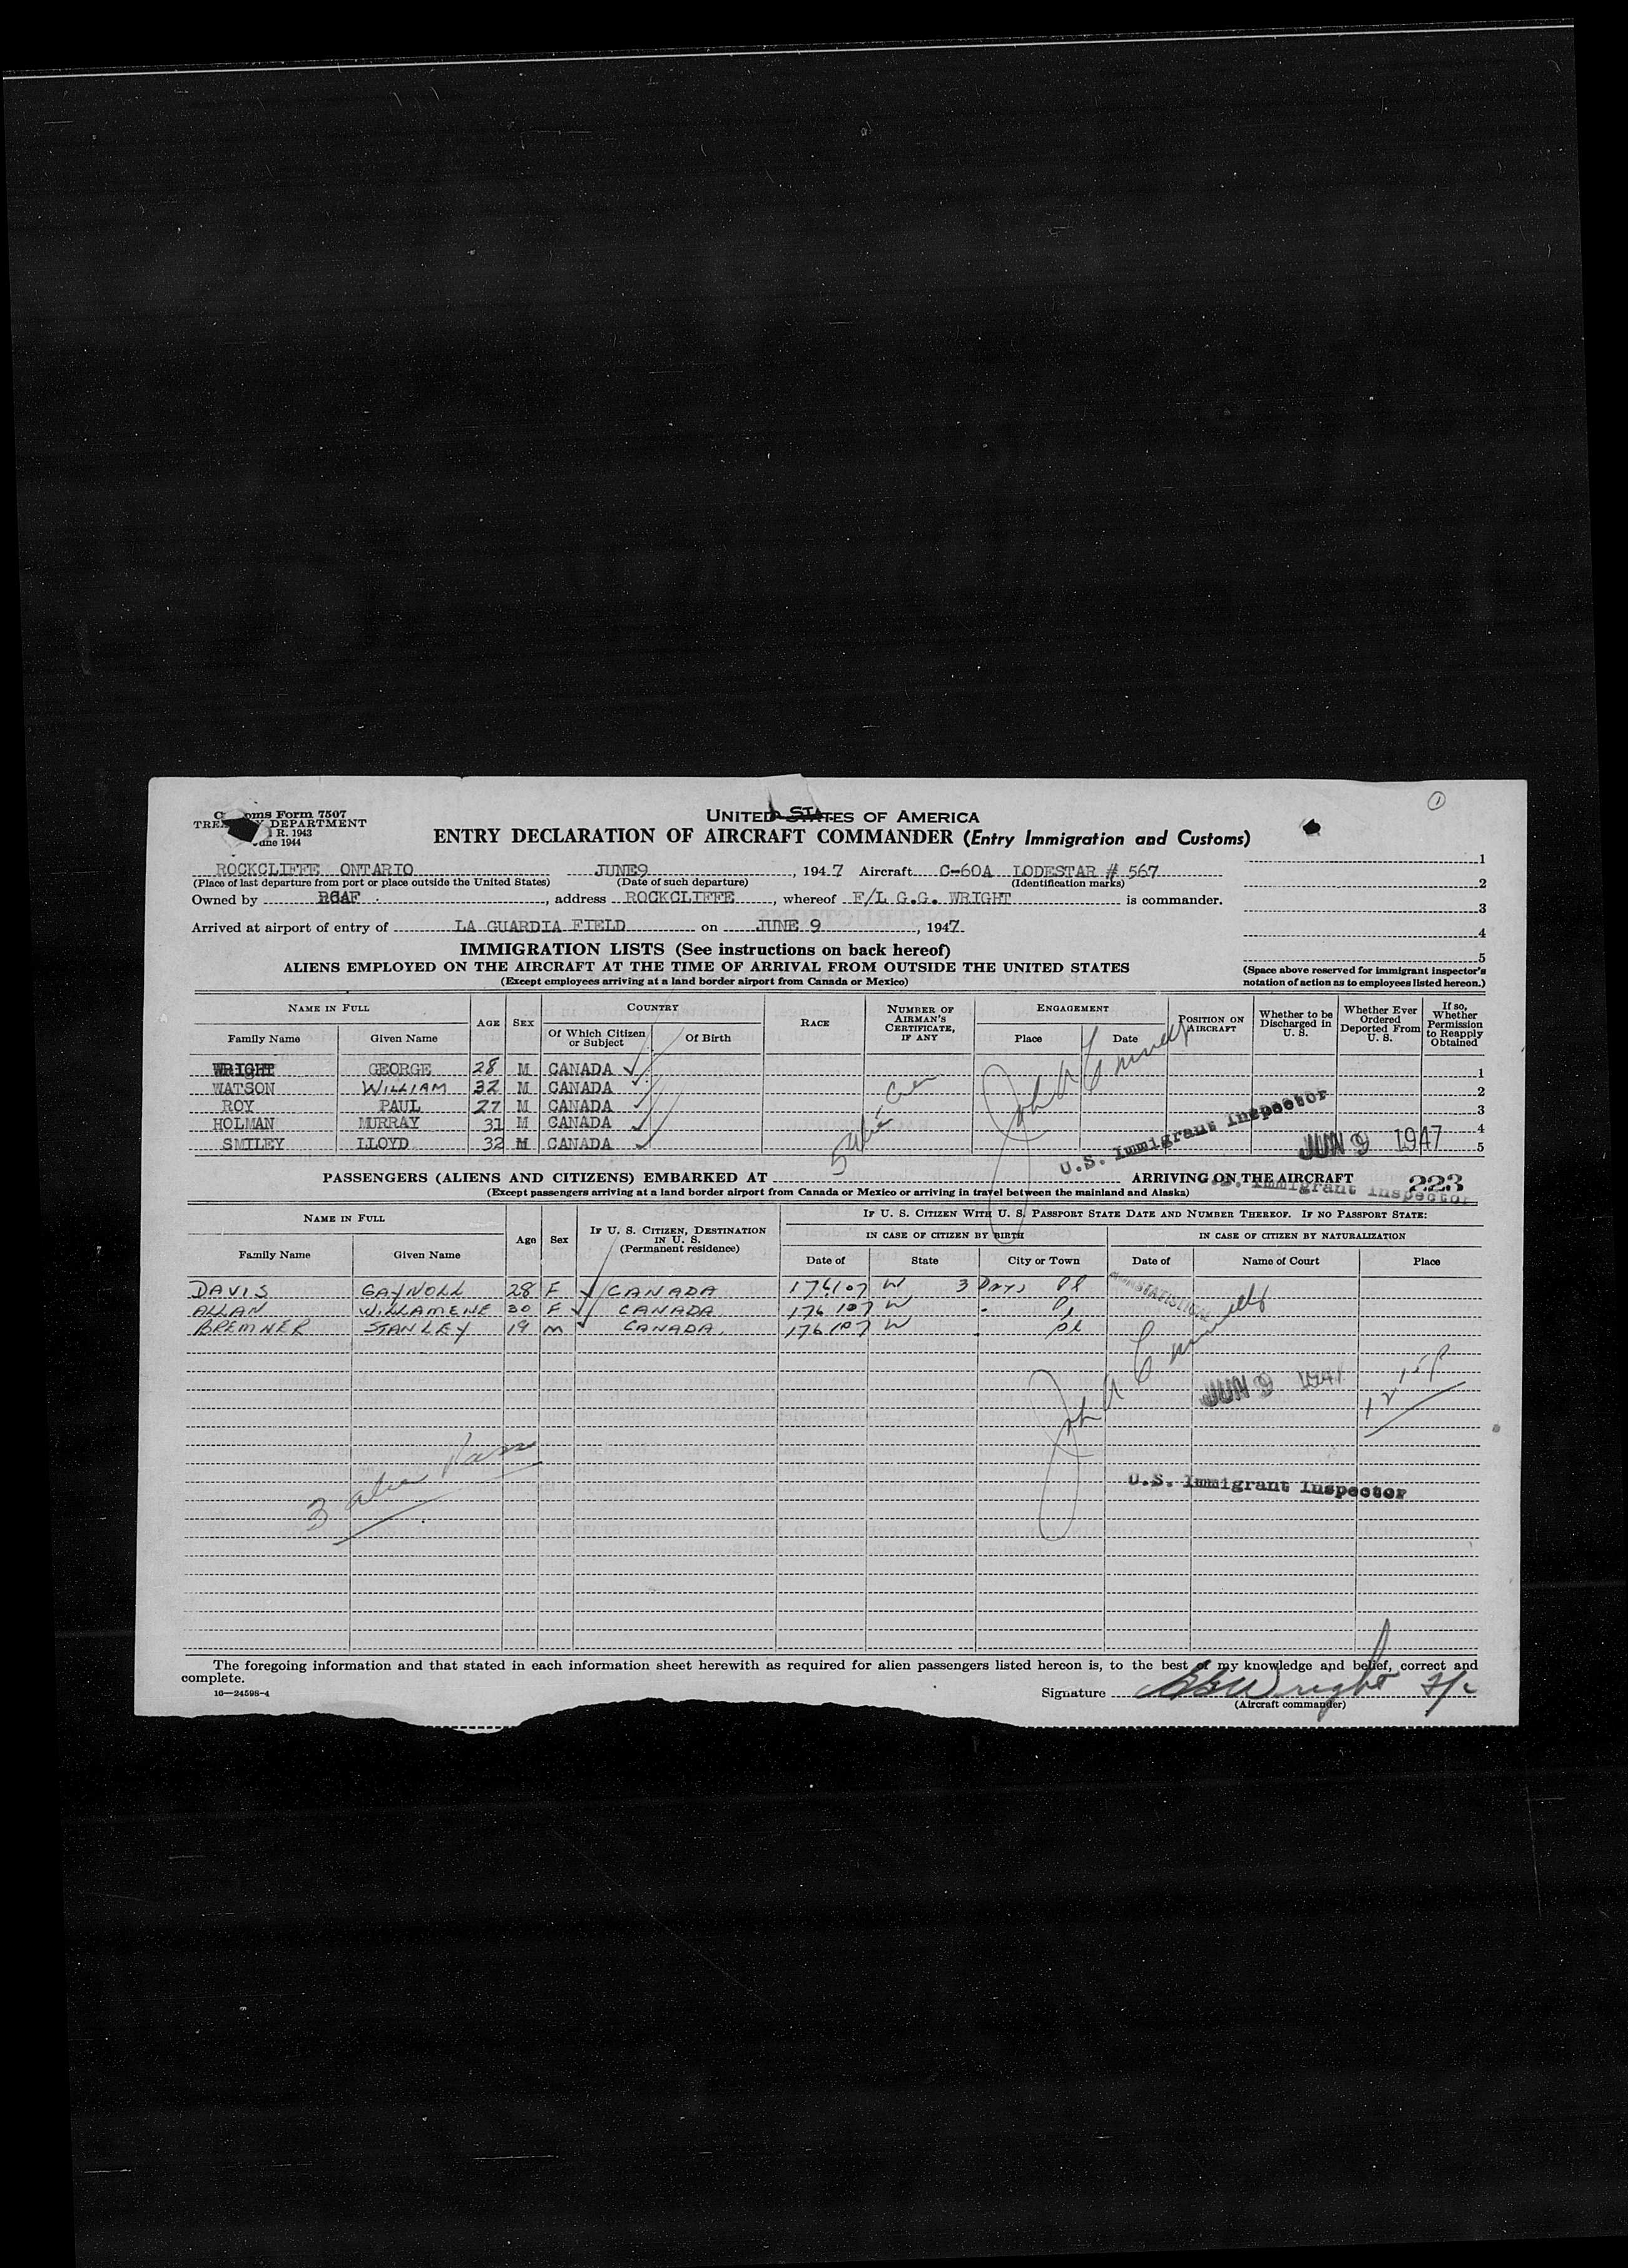 ①
Customs Form 7507
TREASURY DEPARTMENT
R. 1943
June 1944
UNITED STATES OF AMERICA
ENTRY DECLARATION OF AIRCRAFT COMMANDER (Entry Immigration and Customs)
ROCKCLIFFE ONTARIO JUNE9, 1947 Aircraft C-60A LODESTAR # 567
(Place of last departure from port or place outside the United States) (Date of such departure) (Identification marks)
Owned by RCAF, address ROCKCLIFFE, whereof F/L G.G. WRIGHT is commander.
Arrived at airport of entry of LA GUARDIA FIELD on JUNE 9, 1947
1
2
3
4
5
(Space above reserved for immigrant inspector's notation of action as to employees listed hereon.)
IMMIGRATION LISTS (See instructions on back hereof)
ALIENS EMPLOYED ON THE AIRCRAFT AT THE TIME OF ARRIVAL FROM OUTSIDE THE UNITED STATES
(Except employees arriving at a land border airport from Canada or Mexico)
NAME IN FULL AGE SEX COUNTRY RACE NUMBER OF AIRMAN'S CERTIFICATE, IF ANY ENGAGEMENT POSITION ON AIRCRAFT Whether to be Discharged in U. S. Whether Ever Ordered Deported From U. S. If so, Whether Permission to Reapply Obtained
Family Name Given Name Of Which Citizen or Subject Of Birth Place Date
WRIGHT GEORGE 28 M CANADA ✓ 1
WATSON WILLIAM 32 M CANADA ✓ 2
ROY PAUL 27 M CANADA ✓ 3
HOLMAN MURRAY 31 M CANADA ✓ 4
SMILEY LLOYD 32 M CANADA ✓ 5
U.S. Immigrant Inspector
JUN 9 1947
PASSENGERS (ALIENS AND CITIZENS) EMBARKED AT ARRIVING ON THE AIRCRAFT
U.S. Immigrant Inspector
223
(Except passengers arriving at a land border airport from Canada or Mexico or arriving in travel between the mainland and Alaska)
NAME IN FULL Age Sex IF U. S. CITIZEN, DESTINATION IN U. S. (Permanent residence) IF U. S. CITIZEN WITH U. S. PASSPORT STATE DATE AND NUMBER THEREOF. IF NO PASSPORT STATE:
IN CASE OF CITIZEN BY BIRTH IN CASE OF CITIZEN BY NATURALIZATION
Family Name Given Name Date of State City or Town Date of Name of Court Place
DAVIS GAYNOLL 28 F ✓ CANADA 176107 W 3 Days Pl
ALLAN WILLAMENE 30 F ✓ CANADA 176107 W Pl
BREMNER STANLEY 19 M ✓ CANADA. 176107 W Pl
JUN 9 1947
3 alien Pass
U.S. Immigrant Inspector
The foregoing information and that stated in each information sheet herewith as required for alien passengers listed hereon is, to the best of my knowledge and belief, correct and
complete.
16—24598-4
Signature GGWright F/L
(Aircraft commander)